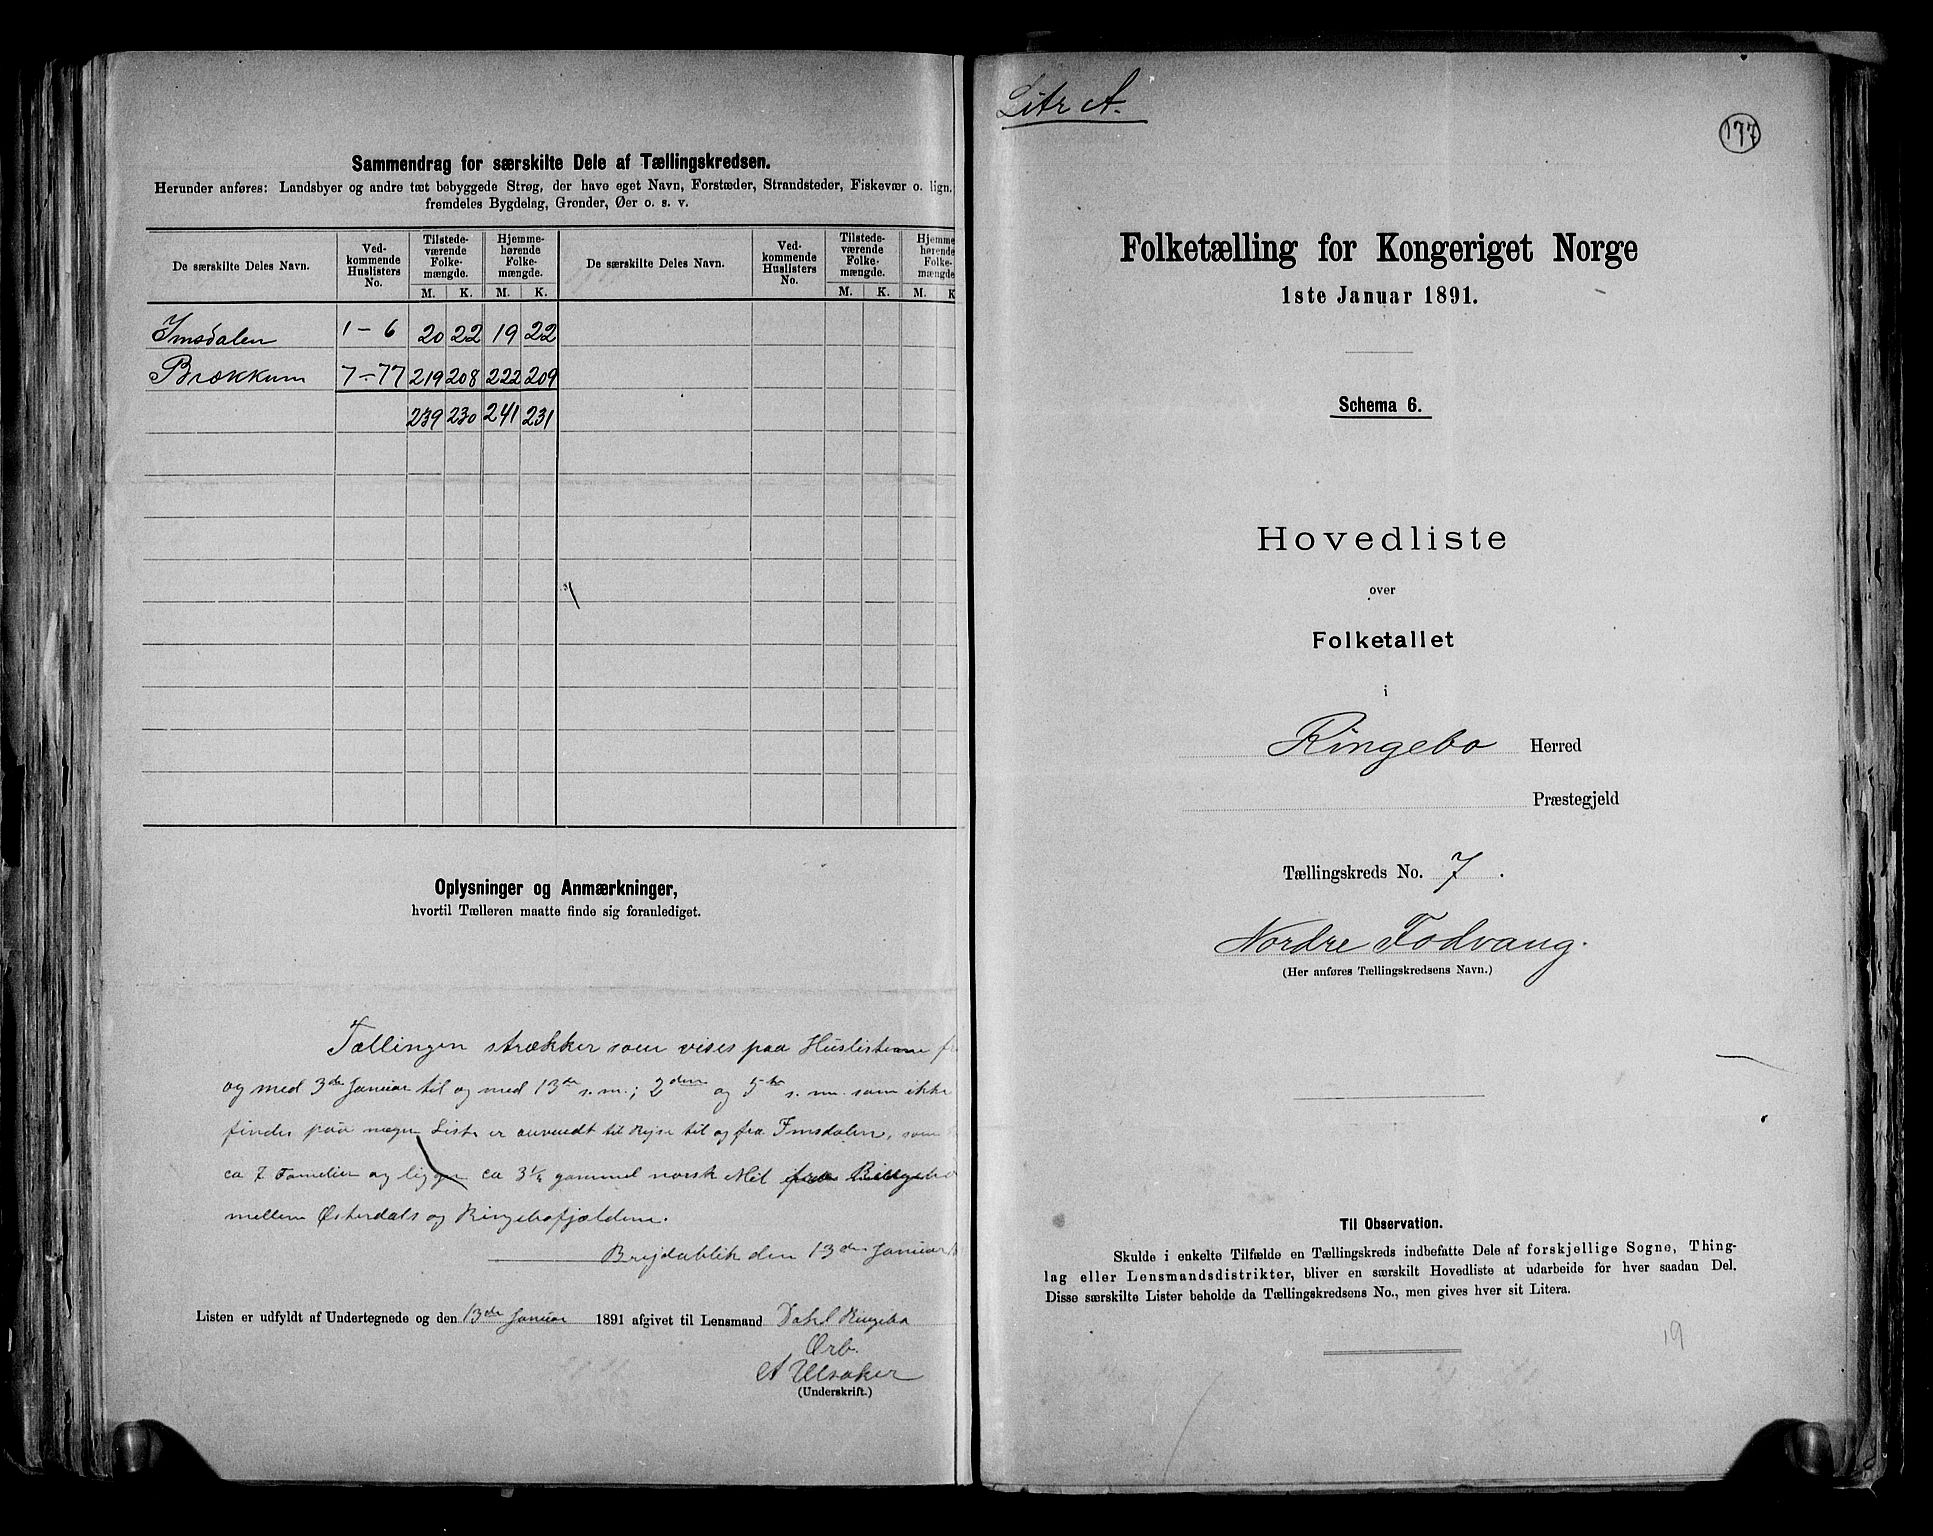 Sammendrag for særskilte Dele af Tællingskredsen.
Herunder anføres: Landsbyer og andre tæt bebyggede Strøg, der have eget Navn, Forstæder, Strandsteder, Fiskevær o. lign.,
fremdeles Bygdelag, Grender, Øer o. s. v.
De særskilte Deles Navn. Ved-kommende Huslisters No. Tilstede-værende Folke-mængde. Hjemme-hørende Folke-mængde. De særskilte Deles Navn. Ved-kommende Huslisters No. Tilstede-værende Folke-mængde. Hjemme-hørende Folke-mængde.
M. K. M. K. M. K. M. K.
Imsdalen 1-6 20 22 19 22
Brækkum 7-77 219 208 222 209
239 230 241 231
Oplysninger og Anmærkninger,
hvortil Tælleren maatte finde sig foranlediget.
Tællingen strækker som vises paa Huslisterne fra
og med 3de Januar til og med 13de s.m.; 2den og 5te s. m. som ikke
findes paa nogen Liste er anvendt til Rejse til og fra Imsdalen, som
ca 7 Familier og ligger ca 3¼ gammel norsk Mil fra Ringebo
mellem Østerdals og Ringebofjeldene.
Brejdablik den 13de Januar
Listen er udfyldt af Undertegnede og den 13de Januar 1891 afgivet til Lensmand Dahl Ringebo
Ærb.
A Ulsaker
(Underskrift.)
Litr A.
177
Folketælling for Kongeriget Norge
1ste Januar 1891.
Schema 6.
Hovedliste
over
Folketallet
i
Ringebo Herred
Præstegjeld
Tællingskreds No. 7.
Nordre Fodvang.
(Her anføres Tællingskredsens Navn.)
Til Observation.
Skulde i enkelte Tilfælde en Tællingskreds indbefatte Dele af forskjellige Sogne, Thing-
lag eller Lensmandsdistrikter, bliver en særskilt Hovedliste at udarbeide for hver saadan Del.
Disse særskilte Lister beholde da Tællingskredsens No., men gives hver sit Litera.
19